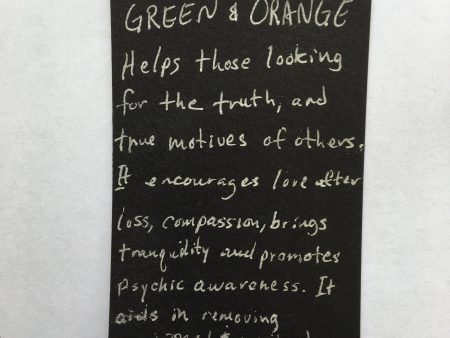 GREEN & ORANGE
Helps those looking
for the truth, and
true motives of others.
It encourages love after
loss, compassion, brings
tranquility and promotes
psychic awareness. It
aids in removing